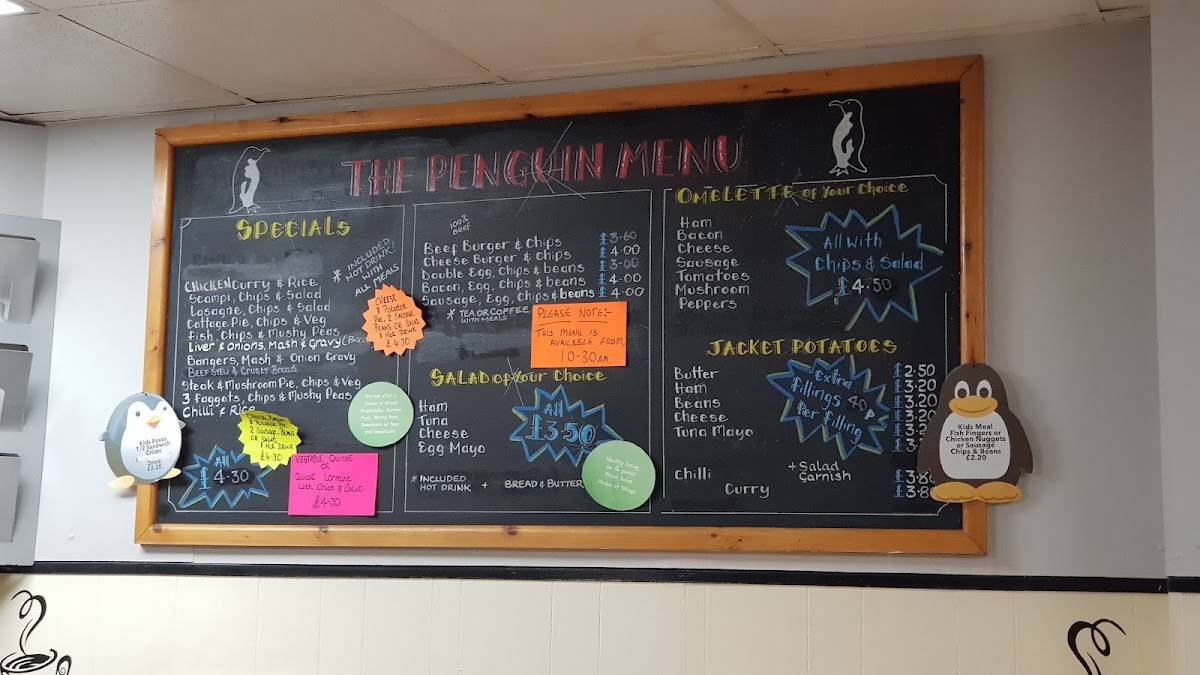 THE PENGUIN MENU
SPECIALS
* INCLUDED
HOT DRINK!
WITH
ALL MEALS
CHICKEN Curry & Rice
Scampi, Chips & Salad
Lasagne, Chips & Salad
Cottage Pie, Chips & Veg
Fish, Chips & Mushy Peas
Liver & Onions, Mash & Gravy
Bangers, Mash & Onion Gravy
BEEF STEW & CRUSTY BREAD
Steak & Mushroom Pie, Chips & Veg
3 Faggots, Chips & Mushy Peas
Chilli & Rice
All
£4·30
CHEESE
& POTATOE
PIE, 2 SAUSAGE
BEANS OR SALAD
& HOT DRINK
£4·30
2 SAUSAGE, BEANS
OR SALAD
& HOT DRINK
£4·30
VEGTABLE QUICHE
OR
QUICHE Lorraine
With Chips & SALAD.
£4·30
100%
Beef
Beef Burger & Chips £3·60
Cheese Burger & chips £4·00
Double Egg, Chips & beans £3·00
Bacon, Egg, Chips & beans £4·00
Sausage, Egg, Chips & beans £4·00
* TEA OR COFFEE
WITH MEALS
PLEASE NOTE:-
THIS MENU IS
AVAILABLE FROM,
10-30AM
SALAD of Your Choice
Ham
Tuna
Cheese
Egg Mayo
All
£3·50
* INCLUDED
HOT DRINK + BREAD & BUTTER
OMELETTE of Your Choice
Ham
Bacon
Cheese
Sausage
Tomatoes
Mushroom
Peppers
All With
Chips & Salad
£4·50
JACKET POTATOES
Butter £2·50
Ham £3·20
Beans £3·20
Cheese £3·2
Tuna Mayo £3·
Extra
fillings 40p
Per filling
+ Salad
Garnish
Chilli £3·8
Curry £3·8
Kids Boxes
1/2 Sandwich
Crisps
Drink
£2.20
Kids Meal
Fish Fingers or
Chicken Nuggets
or Sausage
Chips & Beans
£2.20